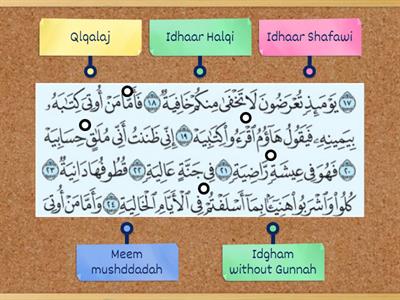 Qlqalaj
Idhaar Halqi
Idhaar Shafawi
١٧ يَوْمَئِذٍ تُعْرَضُونَ لَا تَخْفَىٰ مِنكُمْ خَافِيَةٌ ١٨ فَأَمَّا مَنْ أُوتِيَ كِتَابَهُ
بِيَمِينِهِ فَيَقُولُ هَاؤُمُ اقْرَءُوا كِتَابِيَهْ ١٩ إِنِّي ظَنَنتُ أَنِّي مُلَاقٍ حِسَابِيَهْ
٢٠ فَهُوَ فِي عِيشَةٍ رَّاضِيَةٍ ٢١ فِي جَنَّةٍ عَالِيَةٍ ٢٢ قُطُوفُهَا دَانِيَةٌ ٢٣
كُلُوا وَاشْرَبُوا هَنِيئًا بِمَا أَسْلَفْتُمْ فِي الْأَيَّامِ الْخَالِيَةِ ٢٤ وَأَمَّا مَنْ أُوتِيَ
Meem
mushddadah
Idgham
without Gunnah